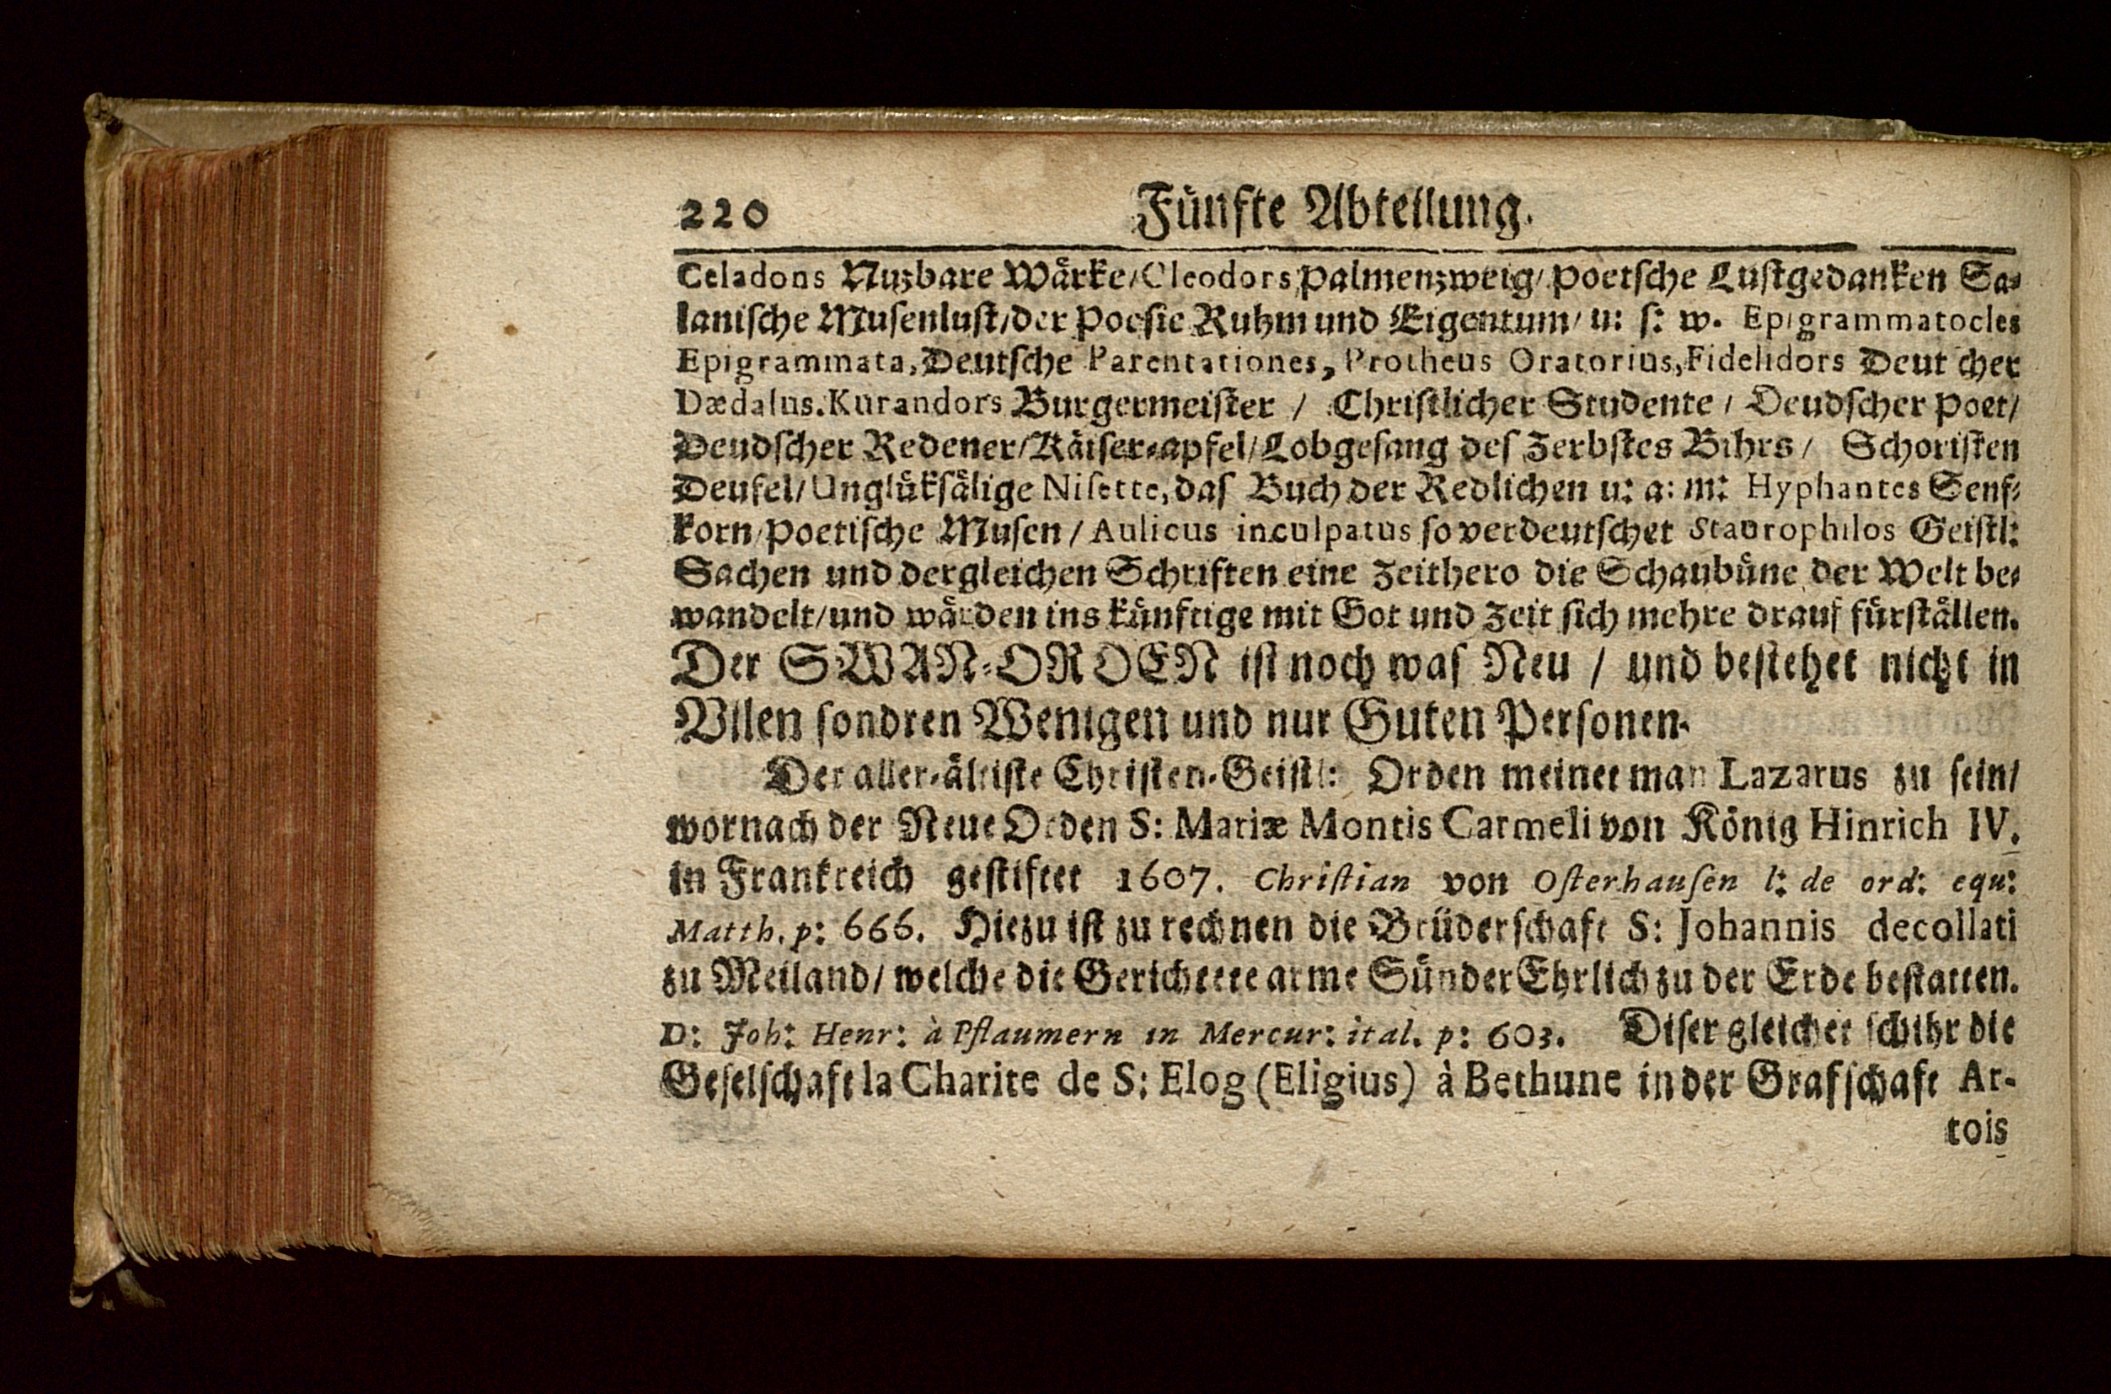 220 Fünfte Abteilung.
Celadons Nuzbare Wärke/Cleodors Palmenzweig/Poetsche Lustgedanken Sa-
lanische Musenlust/der Poesie Ruhm und Eigentum/ u: s: w. Epigrammatocles
Epigrammata, Deutsche Parentationes, Protheus Oratorius, Fidelidors Deut cher
Dædalus. Kurandors Burgermeister / Christlicher Studente / Deudscher Poet/
Deudscher Redener/Käiser-apfel/Lobgesang des Zerbstes Bihrs/ Schoristen
Deufel/Unglüksälige Nisette, das Buch der Redlichen u: a: m: Hyphantes Senf-
korn/Poetische Musen / Aulicus inculpatus so verdeutschet Staurophilos Geistl:
Sachen und dergleichen Schriften eine Zeithero die Schaubüne der Welt be-
wandelt/und wärden ins künftige mit Got und Zeit sich mehre drauf fürställen.
Der SWAN-OROEN ist noch was Neu / und bestehet nicht in
Vilen sondren Wenigen und nur Guten Personen.
Der aller-ältiste Christen-Geistl: Orden meinet man Lazarus zu sein/
wornach der Neue Orden S: Mariæ Montis Carmeli von König Hinrich IV.
in Frankreich gestiftet 1607. Christian von Osterhausen l: de ord: equ:
Matth. p: 666. Hiezu ist zu rechnen die Brüderschaft S: Johannis decollati
zu Meiland/ welche die Gerichtete arme Sünder Ehrlich zu der Erde bestatten.
D: Joh: Henr: à Pflaumern in Mercur: ital. p: 603. Diser gleichet schihr die
Geselschaft la Charite de S: Elog (Eligius) à Bethune in der Grafschaft Ar-
tois